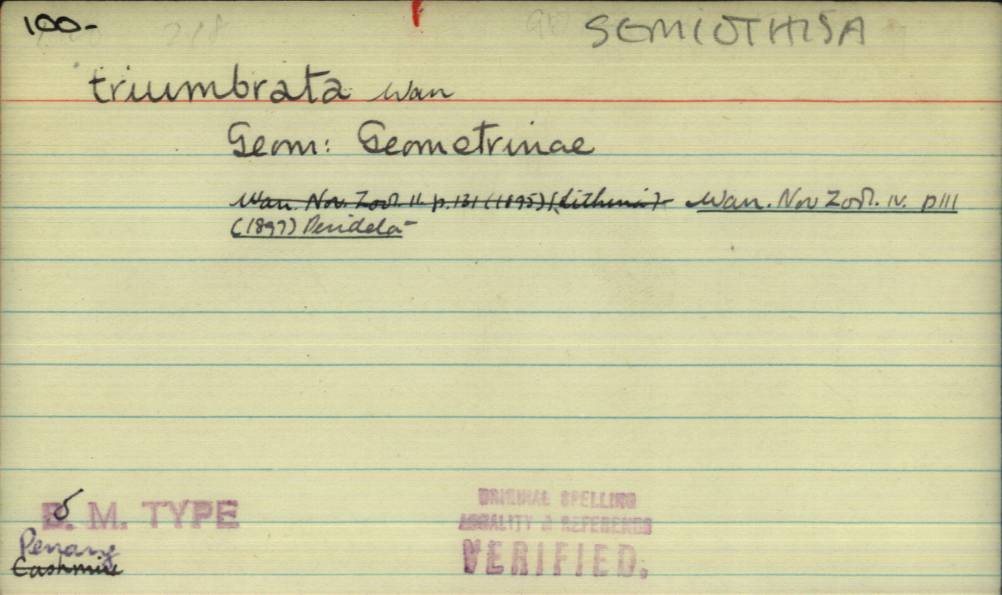 100- SEMIOTHISA
triumbrata Warr
Geom: Geometrinae
Warr. Nov. Zool. II. p.131 (1895) (Lithina) - Warr. Nov Zool. IV. p111
(1897) Peridela -
B. M. TYPE
ORIGINAL SPELLING
LOCALITY & REFERENCE
VERIFIED.
Penang
Cashmir